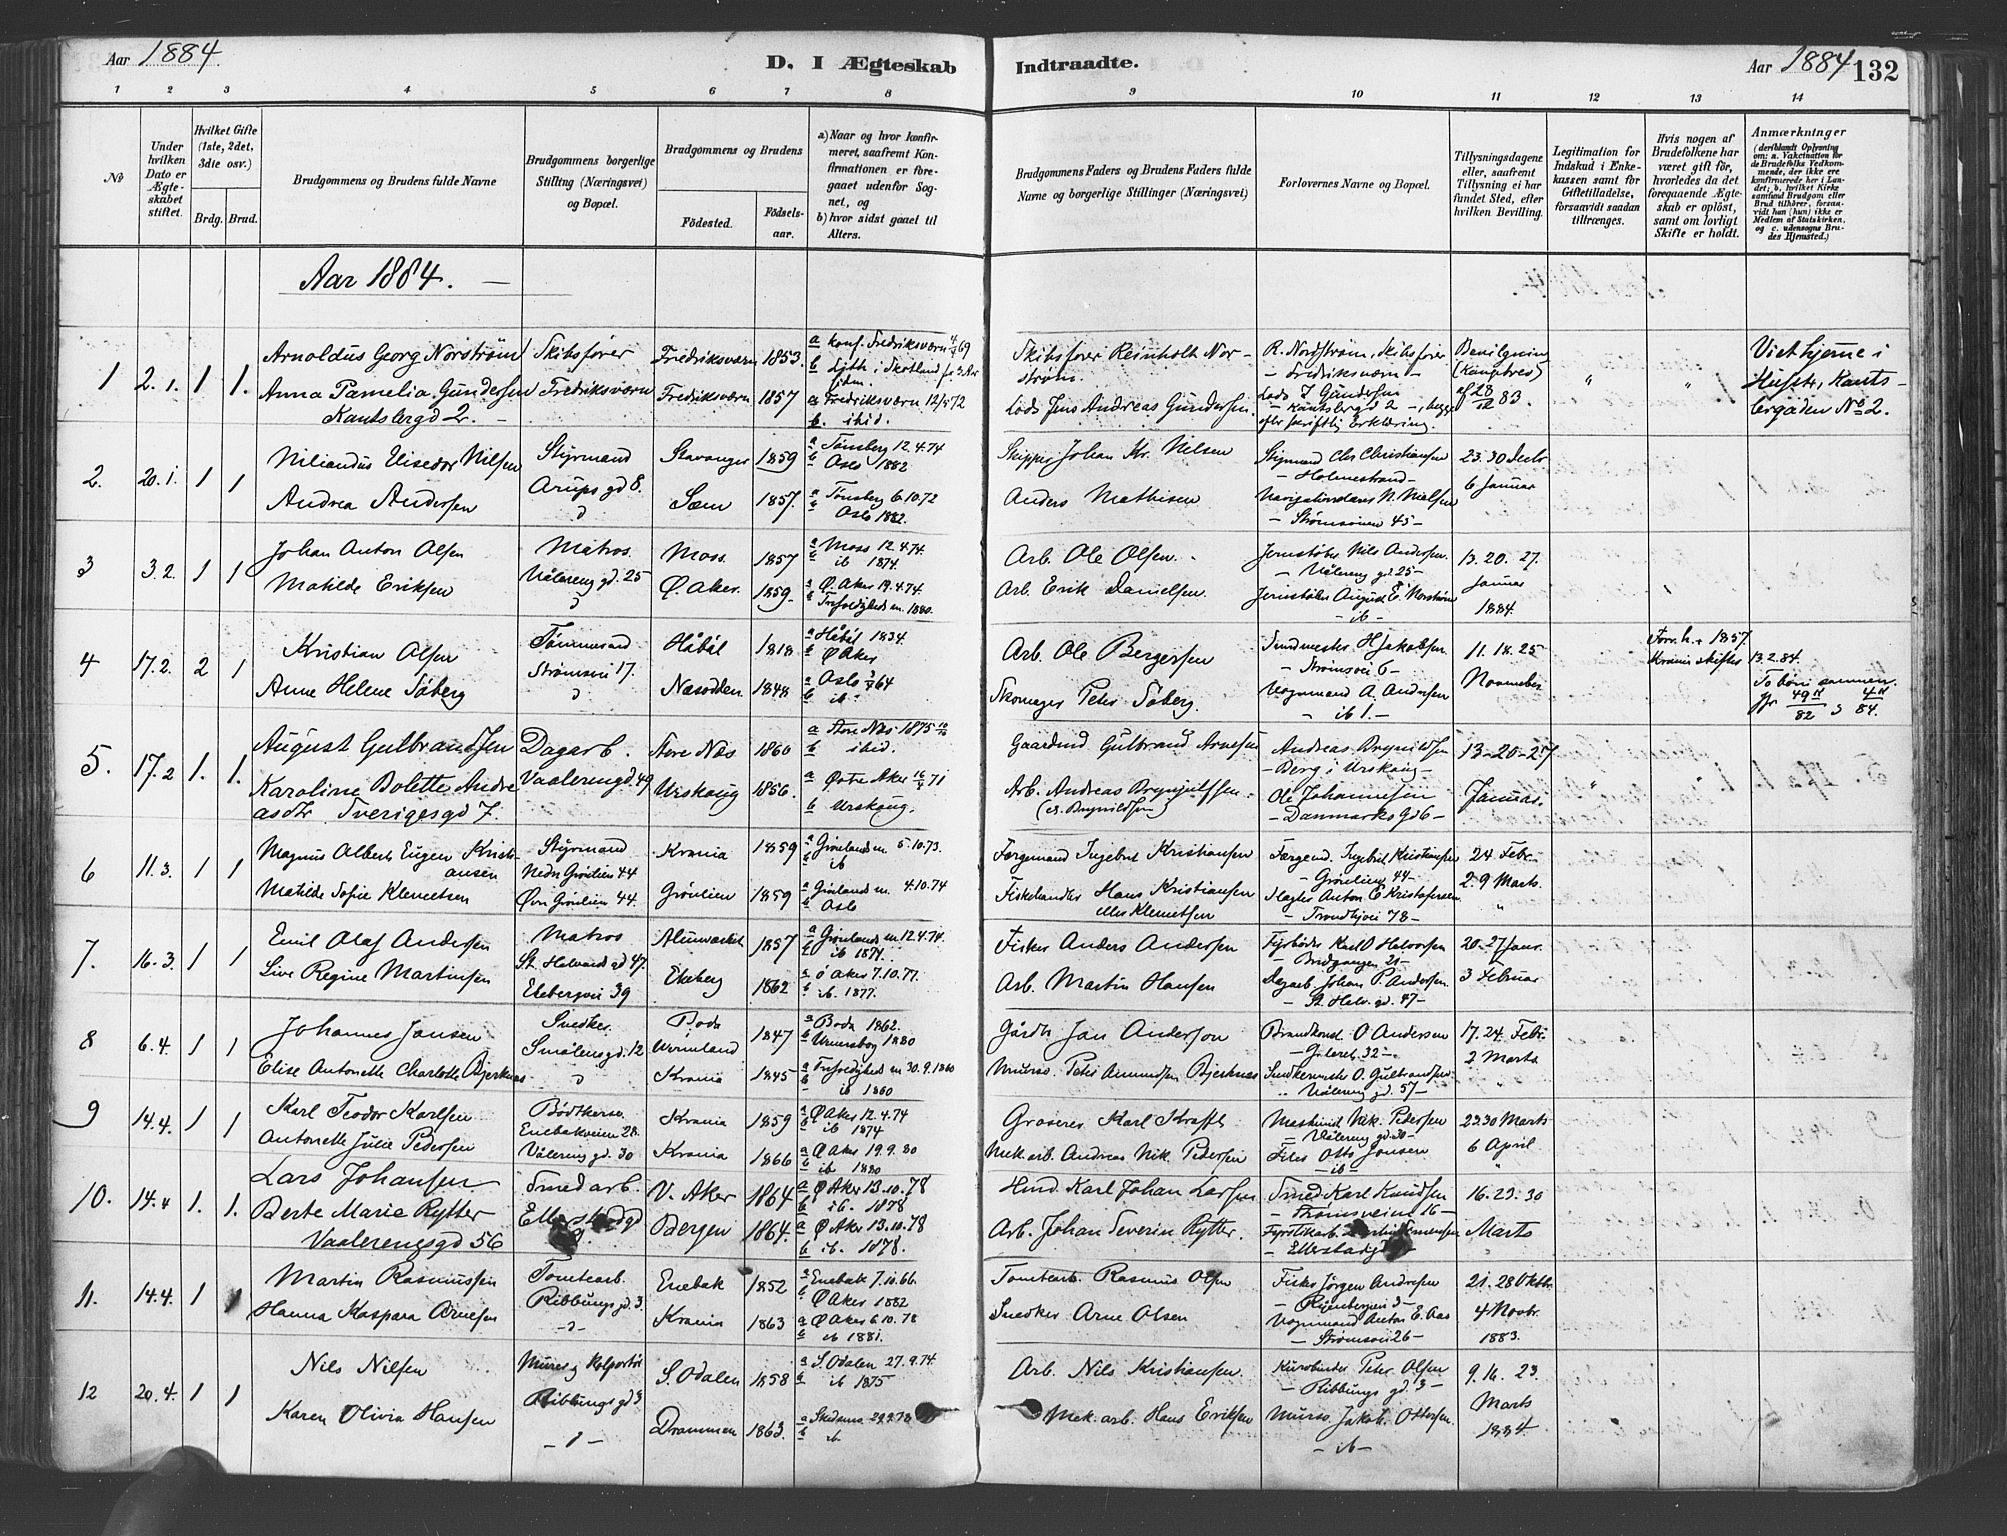 Aar 1884.
D. I Ægteskab
Indtraadte.
Aar 1884
132
1 2 3 4 5 6 7 8 9 10 11 12 13 14
No
Under hvilken Dato er Ægteskabet stiftet.
Hvilket Gifte (1ste, 2det, 3die osv.)
Brdg. Brud.
Brudgommens og Brudens fulde Navne
Brudgommens borgerlige Stilling (Næringsvei) og Bopæl.
Brudgommens og Brudens
Fødested.
Fødselsaar.
a) Naar og hvor konfirmeret, saafremt Konfirmationen er foregaaet udenfor Sognet, og
b) hvor sidst gaaet til Alters.
Brudgommens Faders og Brudens Faders fulde Navne og borgerlige Stillinger (Næringsvei)
Forlovernes Navne og Bopæl.
Tillysningsdagene eller, saafremt Tillysning ei har fundet Sted, efter hvilken Bevilling.
Legitimation for Indskud i Enkekassen samt for Giftetilladelse, forsaavidt saadan tiltrænges.
Hvis nogen af Brudefolkene har været gift før, hvorledes da det foregaaende Ægteskab er opløst, samt om lovligt Skifte er holdt.
Anmærkninger (deriblandt Oplysning om: a. Vakcination for de Brudefolks Vedkommende, der ikke ere konfirmerede her i Landet; b. hvilket Kirkesamfund Brudgom eller Brud tilhører, forsaavidt han (hun) ikke er Medlem af Statskirken, og c. udensogns Brudes Hjemsted.)
Aar 1884.
1 2.1. 1 1. Arnoldus Georg Norstrøm Skibsfører Fredriksværn 1853. a konf. Fredriksværn 69
b Leith i Skotland
Skibsfører Reinholt Norstrøm. R. Nordstrøm, Skibsfører - Fredriksværn - Bevilgning (Kongebrev) af 28/12 83.
Viet hjemme i Huset, Kantslergaden No 2.
Anna Pamelia Gundersen Fredriksværn Fredriksværn 1857 a Fredriksværn 12/5 72
b. ibid.
Kantslergd 2.
Lods Jens Andreas Gundersen. Lods J Gundersen - Kantslergd 2 -, begge efter skriftlig Erklæring.
2. 20.1. 1 1 Niliandus Elisedor Nilsen Styrmand Stavanger 1859 a Tønsberg 12.4.74
b Oslo 1882
Skipper Johan Kr. Nilsen Styrmand Chr Christiansen - Holmestrand - 23.30 Decbr
Andrea Andersen Arups gd 8. Sæm 1857. a Tønsberg 6.10.72
b Oslo 1882.
Anders Mathisen Navigationslærer N. Nielsen - Strømsveien 45 - 6 Januar
3 3.2. 1 1 Johan Anton Olsen Matros. Moss 1857 a Moss 12.4.74.
b ib 1874.
Arb. Ole Olsen. Jernstøber Nils Andersen. - Vålereng gd. 25 - 13. 20. 27.
Matilde Eriksen Vålereng gd. 25 Ø. Aker. 1859. a Ø. Aker 19.4.74.
b Trefoldighed m. 1880.
Arb. Erik Danielsen. Jernstøber August E. Norstrøm - ib - Januar 1884.
4 17.2. 2 1 Kristian Olsen Tømmermand Håbøl 1818 a Håbøl 1834.
b Ø Aker
Arb. Ole Bergersen H Jakobsen - Strømsvei 6 - 11. 18. 25
1857. 13.2.84.
Anne Helene Søberg Strømsvei 17. Næsodden 1848 a Oslo 64
b ib
Skomager Peter Søberg. Vognmand A. Andersen - ib 1. - November
To børn sammen.
5. 17.2 1. 1. August Gulbrandsen Dagarb. Store Næs 1860 a Store Næs 1875
b ibid.
Gaardmd Gulbrand Arnesen Andreas Brynildsen - Berg i Urskoug - 13-20-27
Karoline Bolette Andreasdtr Vaalerengd 49 Urskoug 1856. a Østre Aker 71
b Urskoug.
Sverigesgd 7.
Arb. Andreas Brynjulfsen. (Brynildsen) Ole Johannesen - Danmarks Gd 6 - Januar.
6 11.3. 1 1 Magnus Alberts Eugen Kristiansen Styrmand Krania 1859 a Grønland m. 5.10.73.
b ib
Nedre Grønlien 44
Færgemand Ingebret Kristiansen Færgemd. Ingebret Kristiansen - Grønlien 44 - 24 Febr.
Matilde Sofie Klemetsen Øvre Grønlien 44. Grønlien 1859 a Grønland m. 4.10.74
b Oslo
Fiskehandler Hans Kristiansen eller Klemetsen Slagter Anton E Kristofersen - Trondhjvei 78 - 2. 9 Marts.
7. 16.3. 1 1 Emil Olaf Andersen Matros Alunværket 1857 a Grønlands m. 12.4.74.
b ib 1874.
St. Halvards gd 47.
Fisker Anders Andersen Fyrbøder Karl O Halvorsen 20. 27 Janr.
Live Regine Martinsen Ekebergvei 39 Ekeberg 1862 a Ø Aker 7.10.77.
b ib. 1877.
Arb. Martin Hansen Dagarb. Johan P. Andersen. - St. Halv. gd. 47 - 3 Februar
8 6.4. 1 1 Johannes Jansen Snedker. Boda Wermland 1847 a Boda 1862.
1880
Smålens gd. 12
Gårdbr. Jan Anderson O Andersen 17. 24. Febr.
Elise Antonette Charlotte Bjerknæs Krania 1845 a Trefoldighed m 30.9.1860
b ib 1860
Murer Peter Amundsen Bjerknæs Snedkermester O. Gulbrandsen - Vålereng gd. 57 - 2 Marts
9 14.4. 1 1 Karl Teodor Karlsen Bødtkersv. Krania 1859 a Ø Aker 12.4.74
b ib 1874
Enebakveien 28.
Groserer Karl Krafft Maskinist Nik. Pedersen - Vålereng gd. 30 - 23 30 Marts
Antonette Julie Pedersen Vålereng gd. 30 Krania 1866 a Ø Aker 19.9.80
b ib 1880
Mek. arb. Andreas Nik. Pedersen Otto Jonsen - ib - 6 April
10. 14.4 1. 1. Lars Johansen Smed arb. V. Aker 1864 a Ø Aker 13.10.78
b ib. 1878
Hmd. Karl Johan Larsen Smed Karl Knudsen - Strømsveien 16 - 16. 23. 30
Berte Marie Rytter Bergen 1864. a Ø Aker 13.10.78
b ib. 1878.
Vaalerengsgd 56
Arb. Johan Severin Rytter. Fyrstikarb. Marts
11. 14.4. 1 1 Martin Rasmussen Tomtearb. Enebak 1852 a Enebak 7.10.66
b Ø Aker 1882
Ribbungs gd. 3.
Tomtearb. Rasmus Olsen Fisker Jørgen Andersen 21. 28 Oktbr.
Hanna Kaspara Arnesen Krania 1863 a Ø Aker 6.10.78
b ib 1881.
Snedker Arne Olsen Vognmand Anton E. Aas - Strømsvei 26 - 4 Novbr. 1883.
12 20.4. 1 1 Nils Nilsen Murer og Kolportør S. Odalen 1858 a S. Odalen 27.9.74.
b ib 1875
Ribbungs gd 3
Arb. Nils Kristiansen. Peter Olsen - Ribbungs gd. 3 - 9. 16. 23
Karen Olivia Hansen Drammen 1863.
b ib
Mek. arb. Hans Eriksen Murer Jakob Ottersen. - ib - Marts 1884.